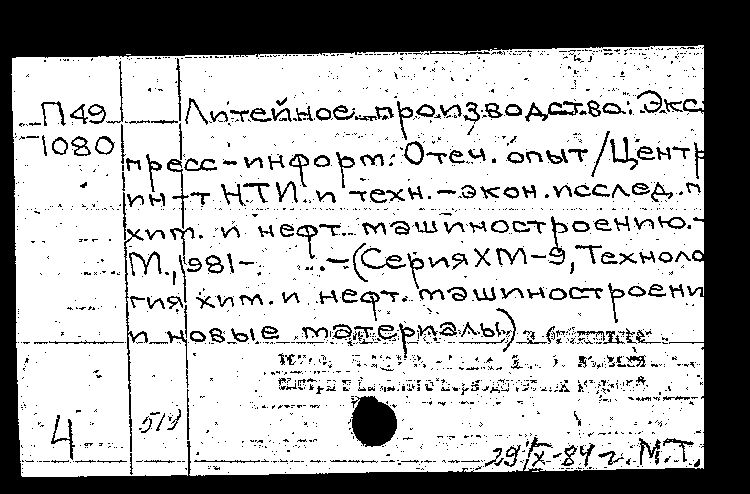 П49 Литейное производство: Экс
1080
пресс-информ. Отеч. опыт/Центр
ин-т НТИ и техн.-экон. исслед. п
хим. и нефт. машиностроению.-
М., 1981- . .-(Серия ХМ-9, Техноло
гия хим. и нефт. машиностроени
и новые материалы)
4 519
29/X-84 г. М.Т.